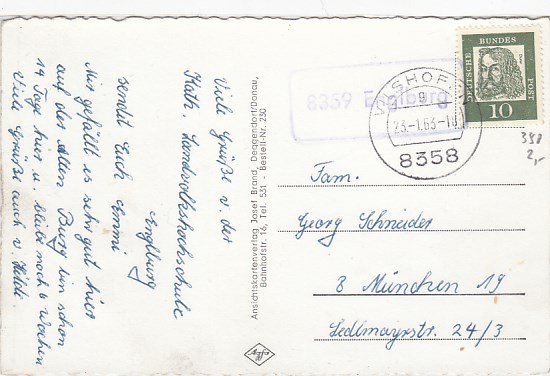 Viele Grüße v. der
Kath. Landvolkshochschule
Englburg
sendet Euch Emmi
Mir gefällt es sehr gut hier
auf der Alten Burg bin schon
14 Tage hier u. bleibe noch 6 Wochen
Viele Grüße auch v. Hilde
Ansichtskartenverlag Josef Brand, Deggendorf/Donau,
Bahnhofstr. 16, Tel. 531 - Bestell-Nr. 230
Agfa
8359 Englburg
VILSHOFEN
a
23.-1.63-1
8358
DEUTSCHE
BUNDES
POST
10
398
2,-
Fam.
Georg Schneider
8 München 19
Sedlmayrstr. 24/3